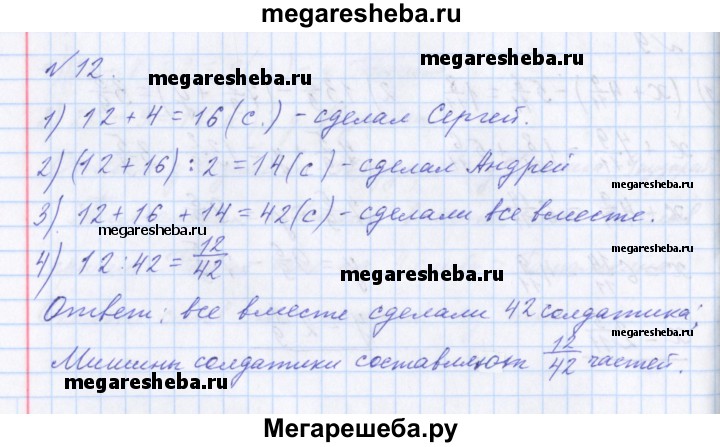 megaresheba.ru
№12.
megaresheba.ru
1) 12 + 4 = 16 (с.) - сделал Сергей.
2) (12 + 16) : 2 = 14 (с) - сделал Андрей
megaresheba.ru
3) 12 + 16 + 14 = 42 (с) - сделали все вместе.
megaresheba.ru
4) 12 : 42 = 12/42
megaresheba.ru
Ответ: все вместе сделали 42 солдатика;
megaresheba.ru
Мишины солдатики составляют 12/42 частей.
megaresheba.ru
Мегарешеба.ру